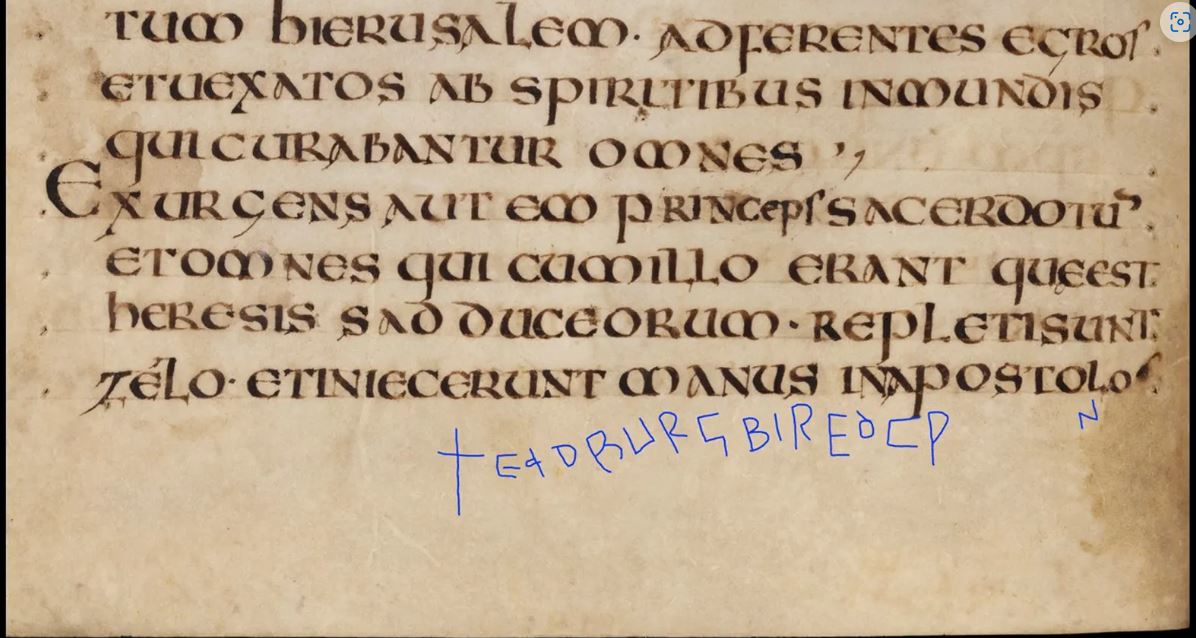 TUM HIERUSALEM· ADFERENTES EGROS
ETUEXATOS AB SPIRITIBUS INMUNDIS
QUI CURABANTUR OMNES ’,
EXURGENS AUTEM PRINCEPS SACERDOTŪ
ETOMNES QUI CUMILLO ERANT QUĘEST
HERESIS SADDUCEORUM· REPLETISUNT
ZÉLO· ETINIECERUNT MANUS INAPOSTOLOS
†EADBURG BIREðCP N